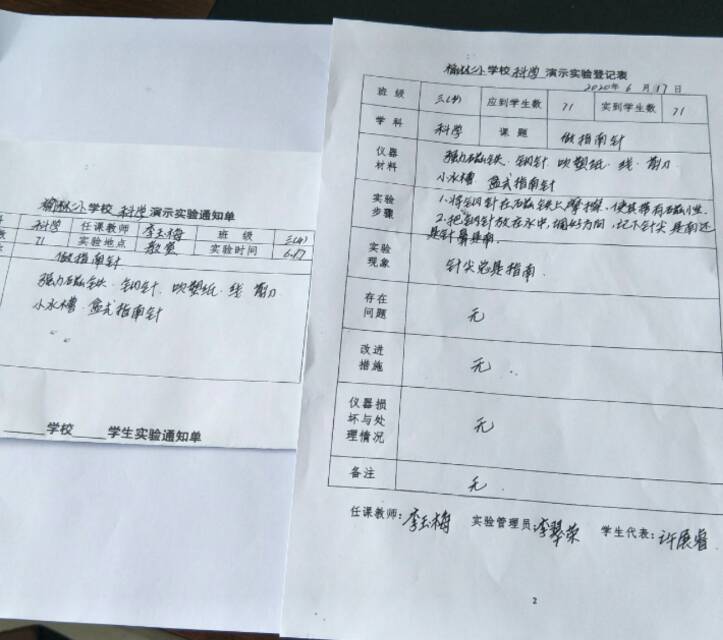 榆林小学校科学演示实验通知单
科学 任课教师 李玉梅 班级 三(4)
71 实验地点 教室 实验时间 6.17
做指南针
强力磁铁 钢针 吹塑纸 线 剪刀
小水槽 盒式指南针
学校 学生实验通知单
榆林小学校科学演示实验登记表
2020年6月17日
班级 三(4) 应到学生数 71 实到学生数 71
学科 科学 课题 做指南针
仪器材料 强力磁铁 钢针 吹塑纸 线 剪刀
小水槽 盒式指南针
实验步骤 1.将钢针在磁铁上摩擦,使其带有磁性.
2.把钢针放在水中,调好方向,记下针尖是南还
是针鼻是南.
实验现象 针尖总是指南.
存在问题 无
改进措施 无.
仪器损坏与处理情况 无
备注 无.
任课教师:李玉梅 实验管理员:李翠荣 学生代表:许展睿
2